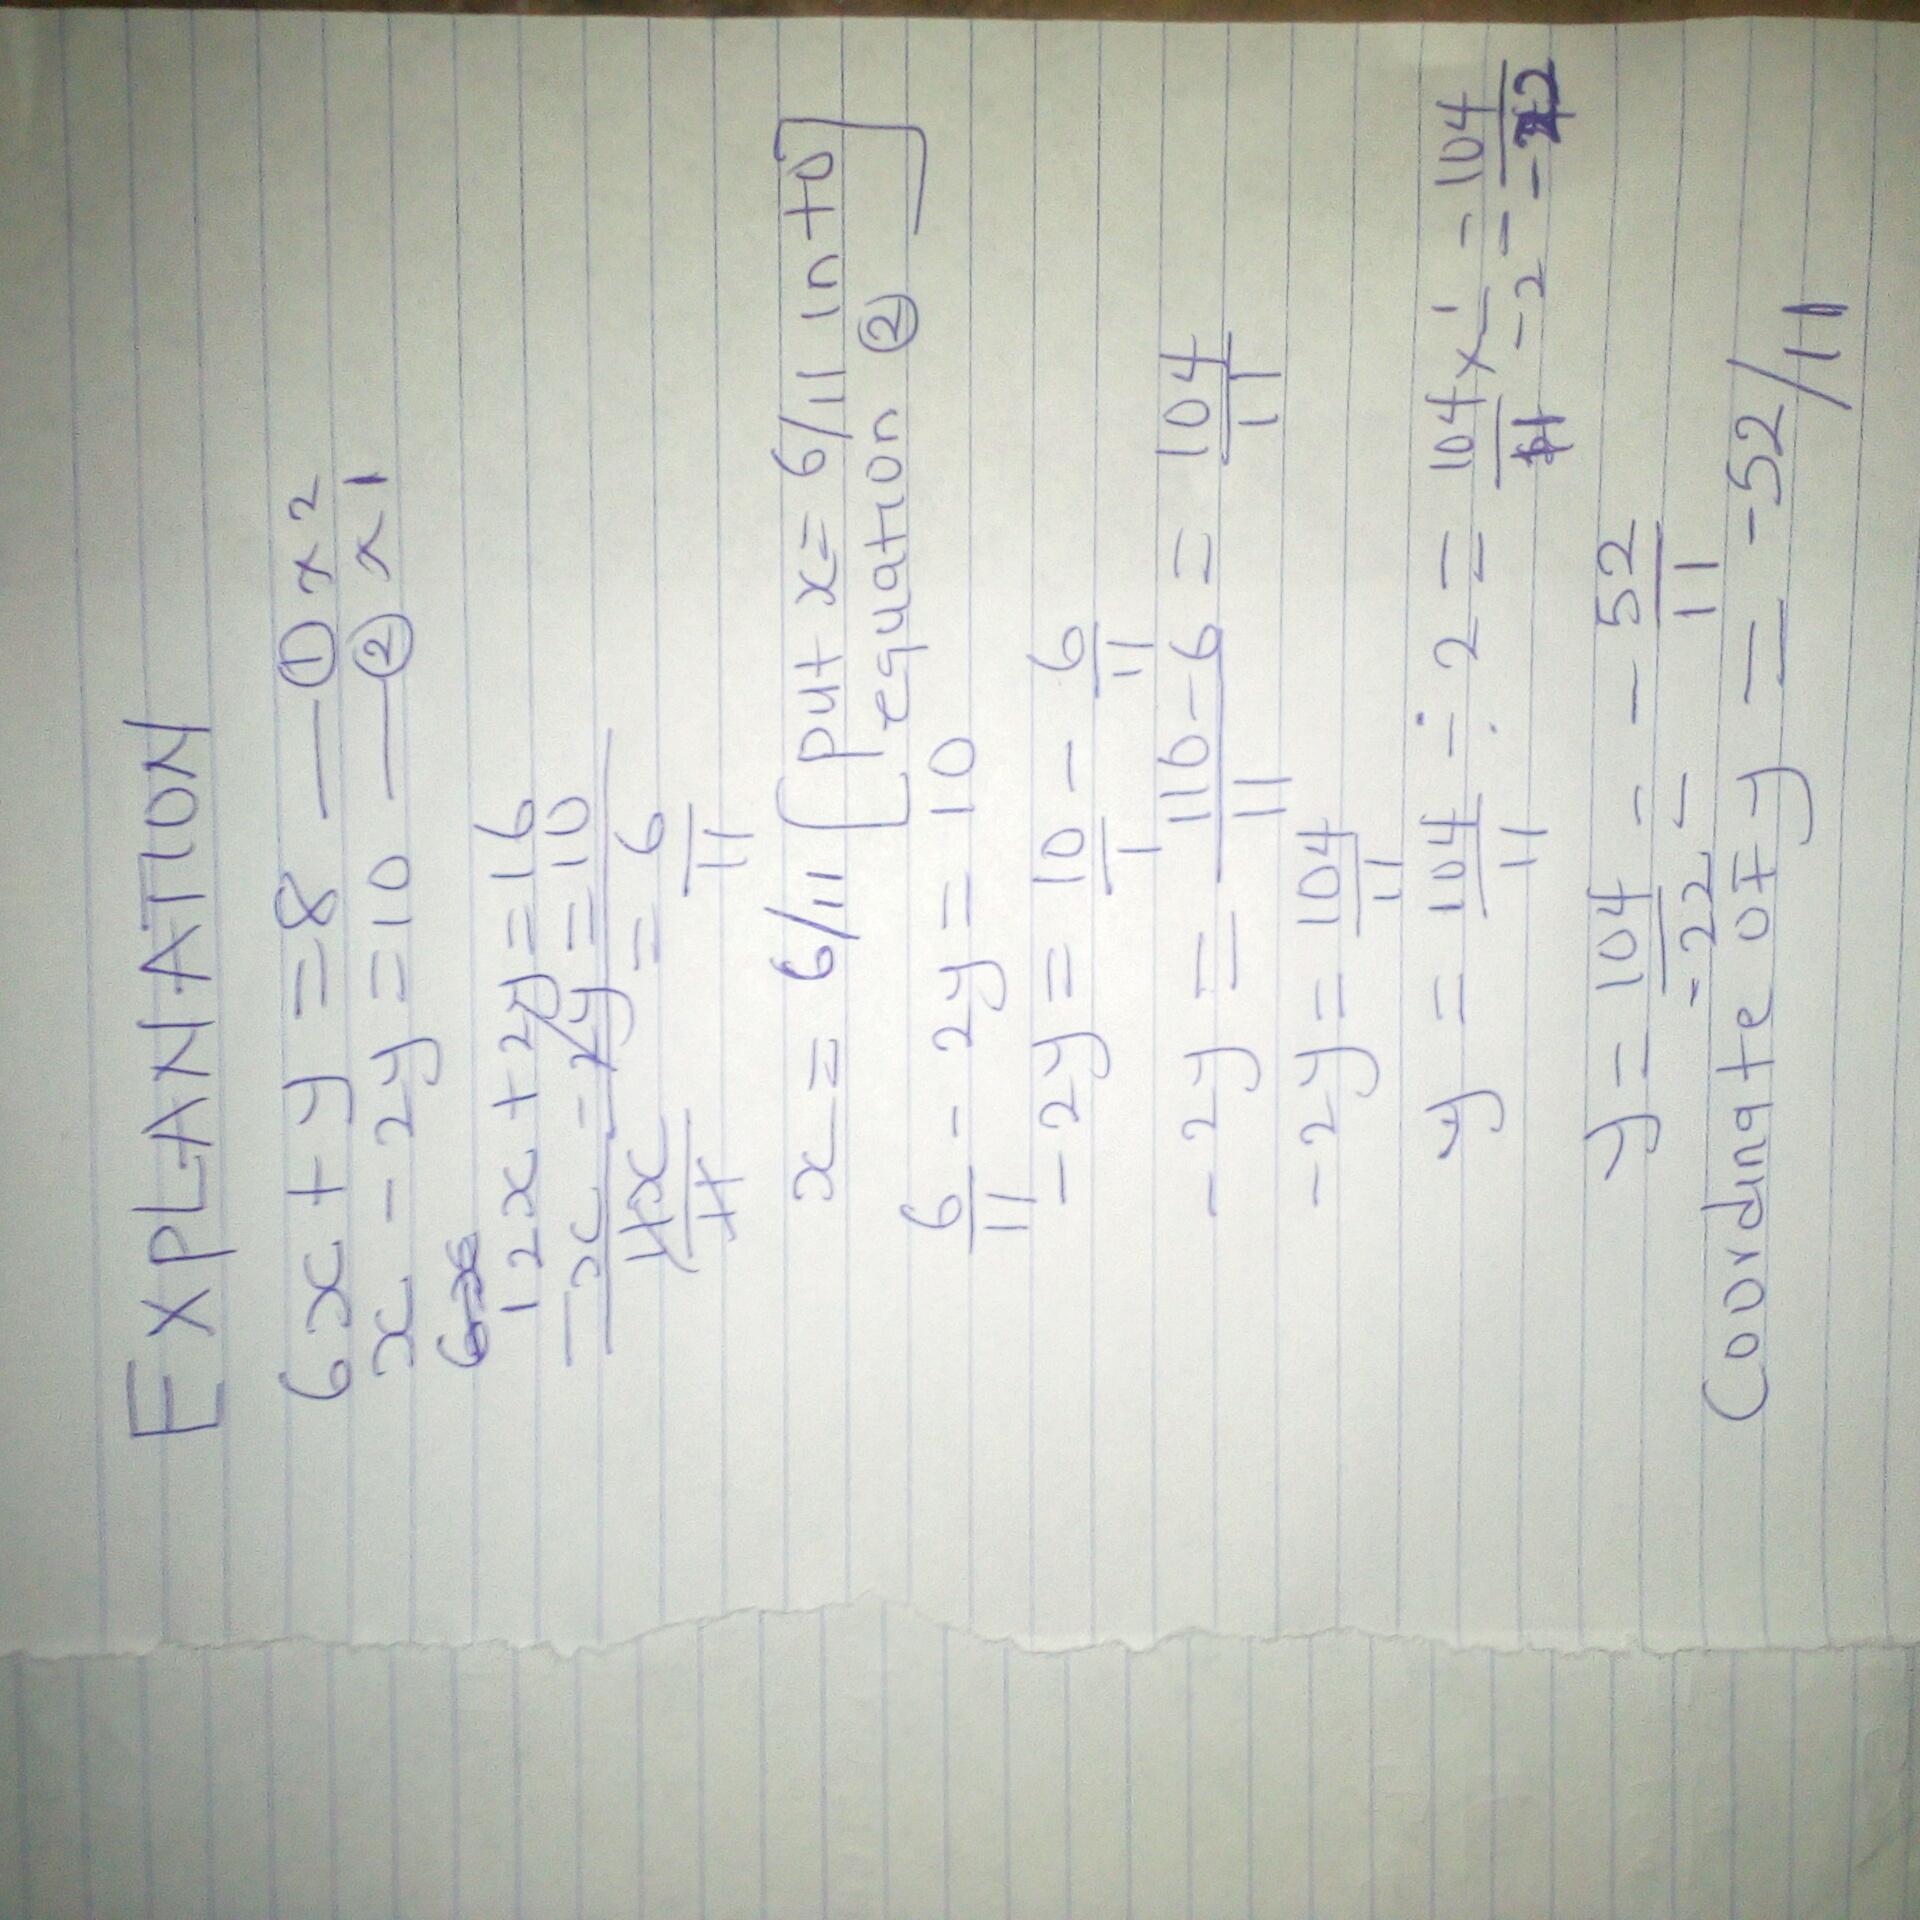 EXPLANATION
6x + y = 8 — ① x 2
x - 2y = 10 — ② x 1
12x + 2y = 16
- x - 2y = 10
11x/11 = 6/11
x = 6/11 [put x = 6/11 into
equation ②]
6/11 - 2y = 10
-2y = 10/1 - 6/11
-2y = 110-6/11 = 104/11
-2y = 104/11
y = 104/11 ÷ -2 = 104/11 x 1/-2 = -104/-22
y = 104/-22 = -52/11
Coordinate of y = -52/11